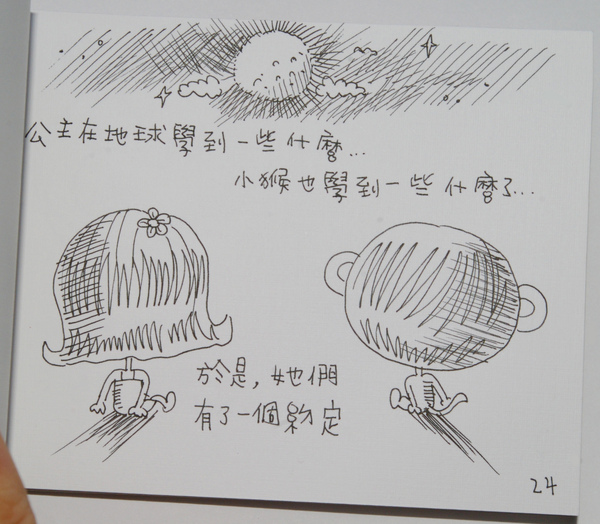 公主在地球學到一些什麼...
小猴也學到一些什麼了...
於是,她們
有了一個約定
24